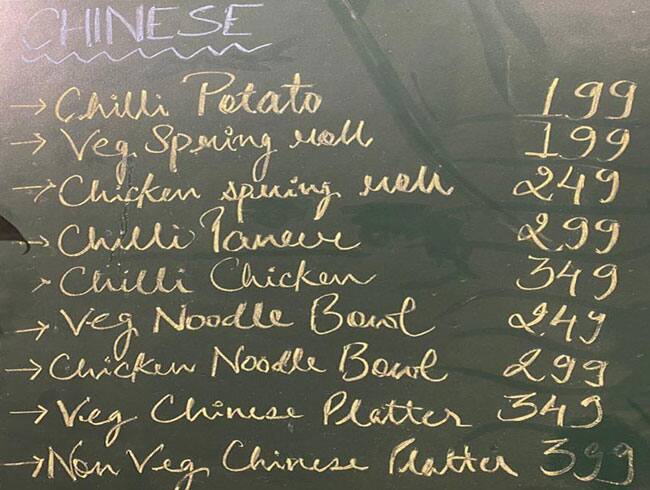 CHINESE
→ Chilli Potato 199
→ Veg Spring roll 199
→ Chicken spring roll 249
→ Chilli Paneer 299
→ Chilli Chicken 349
→ Veg Noodle Bowl 249
→ Chicken Noodle Bowl 299
→ Veg Chinese Platter 349
→ Non Veg Chinese Platter 399